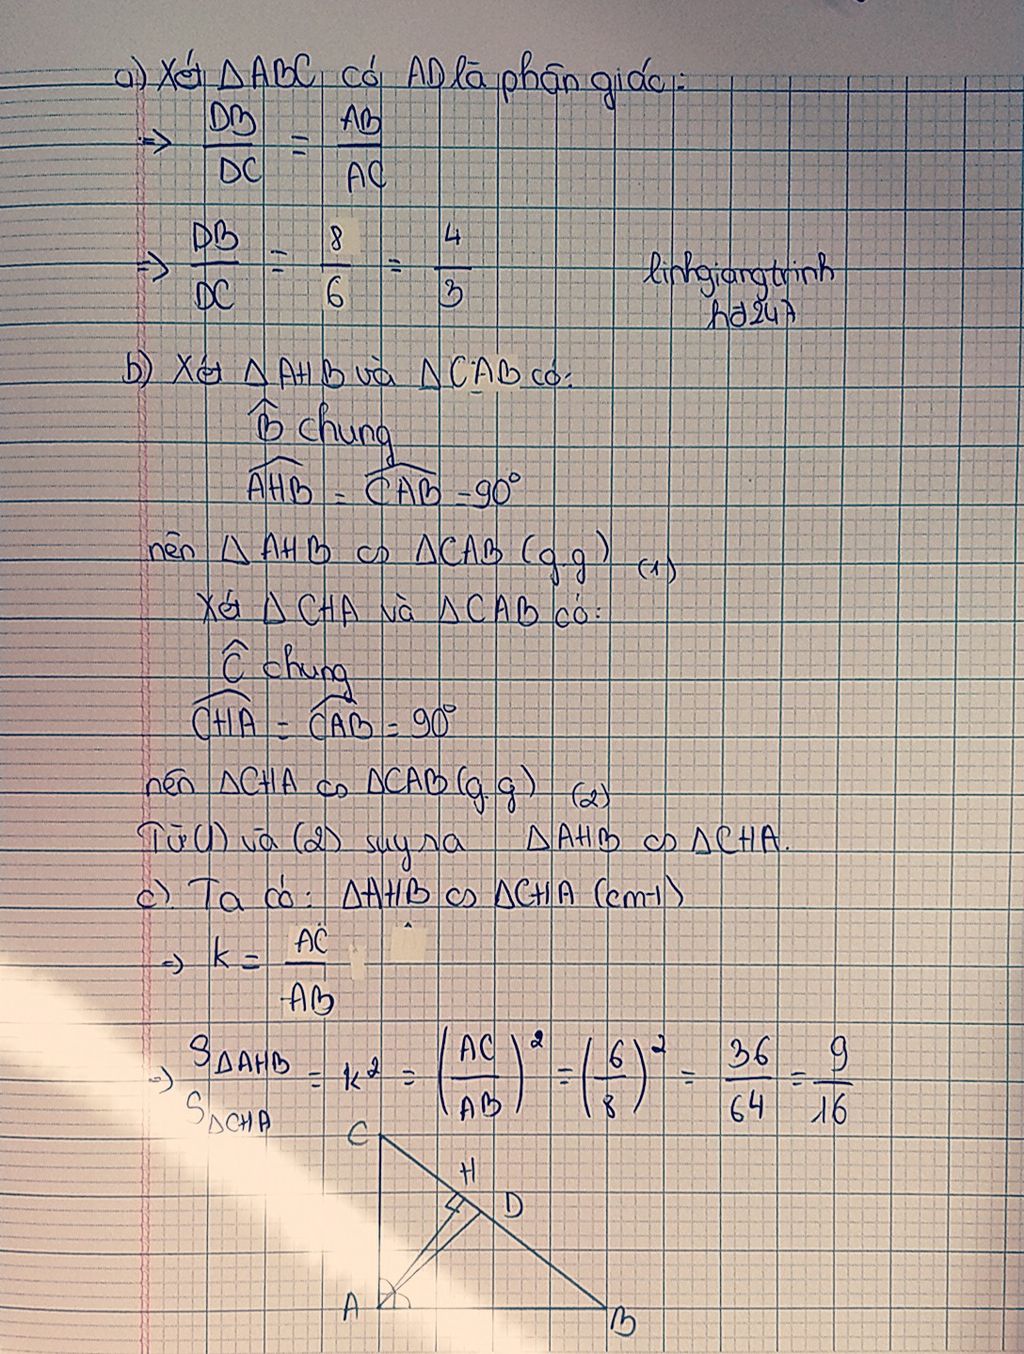 a) Xét ΔABC có AD là phân giác:
=> DB/DC = AB/AC
=> DB/DC = 8/6 = 4/3
linhgiangtrinh
hd247
b) Xét ΔAHB và ΔCAB có:
B̂ chung
AHB = CAB = 90°
nên ΔAHB ∽ ΔCAB (g.g) (1)
Xét ΔCHA và ΔCAB có:
Ĉ chung
CHA = CAB = 90°
nên ΔCHA ∽ ΔCAB (g.g) (2)
Từ (1) và (2) suy ra ΔAHB ∽ ΔCHA.
c) Ta có: ΔAHB ∽ ΔCHA (cmt)
=> k = AC/AB
=> SΔAHB/SΔCHA = k² = (AC/AB)² = (6/8)² = 36/64 = 9/16
C
H
D
A
B